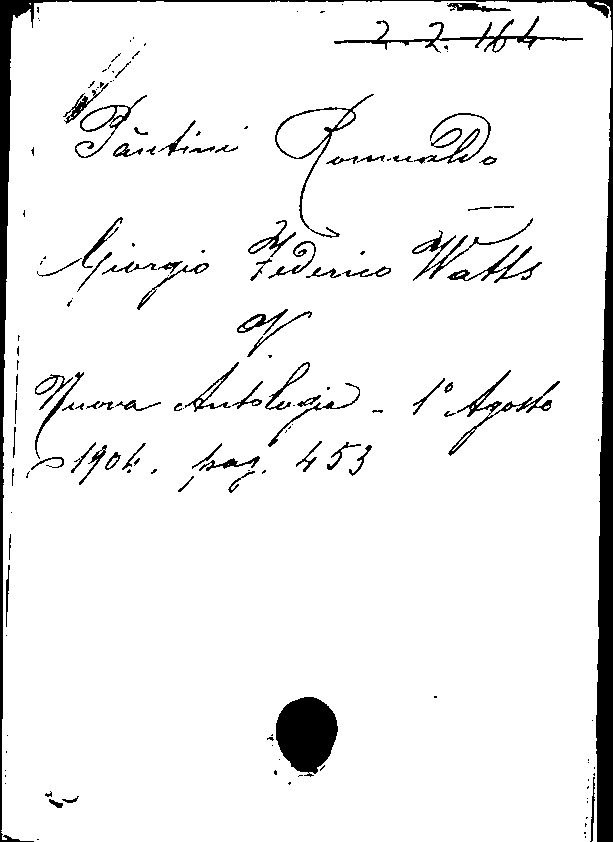 2. 2. 164
Pantini Romualdo
Giorgio Federico Watts
V
Nuova Antologia - 1° Agosto
1904. pag. 453